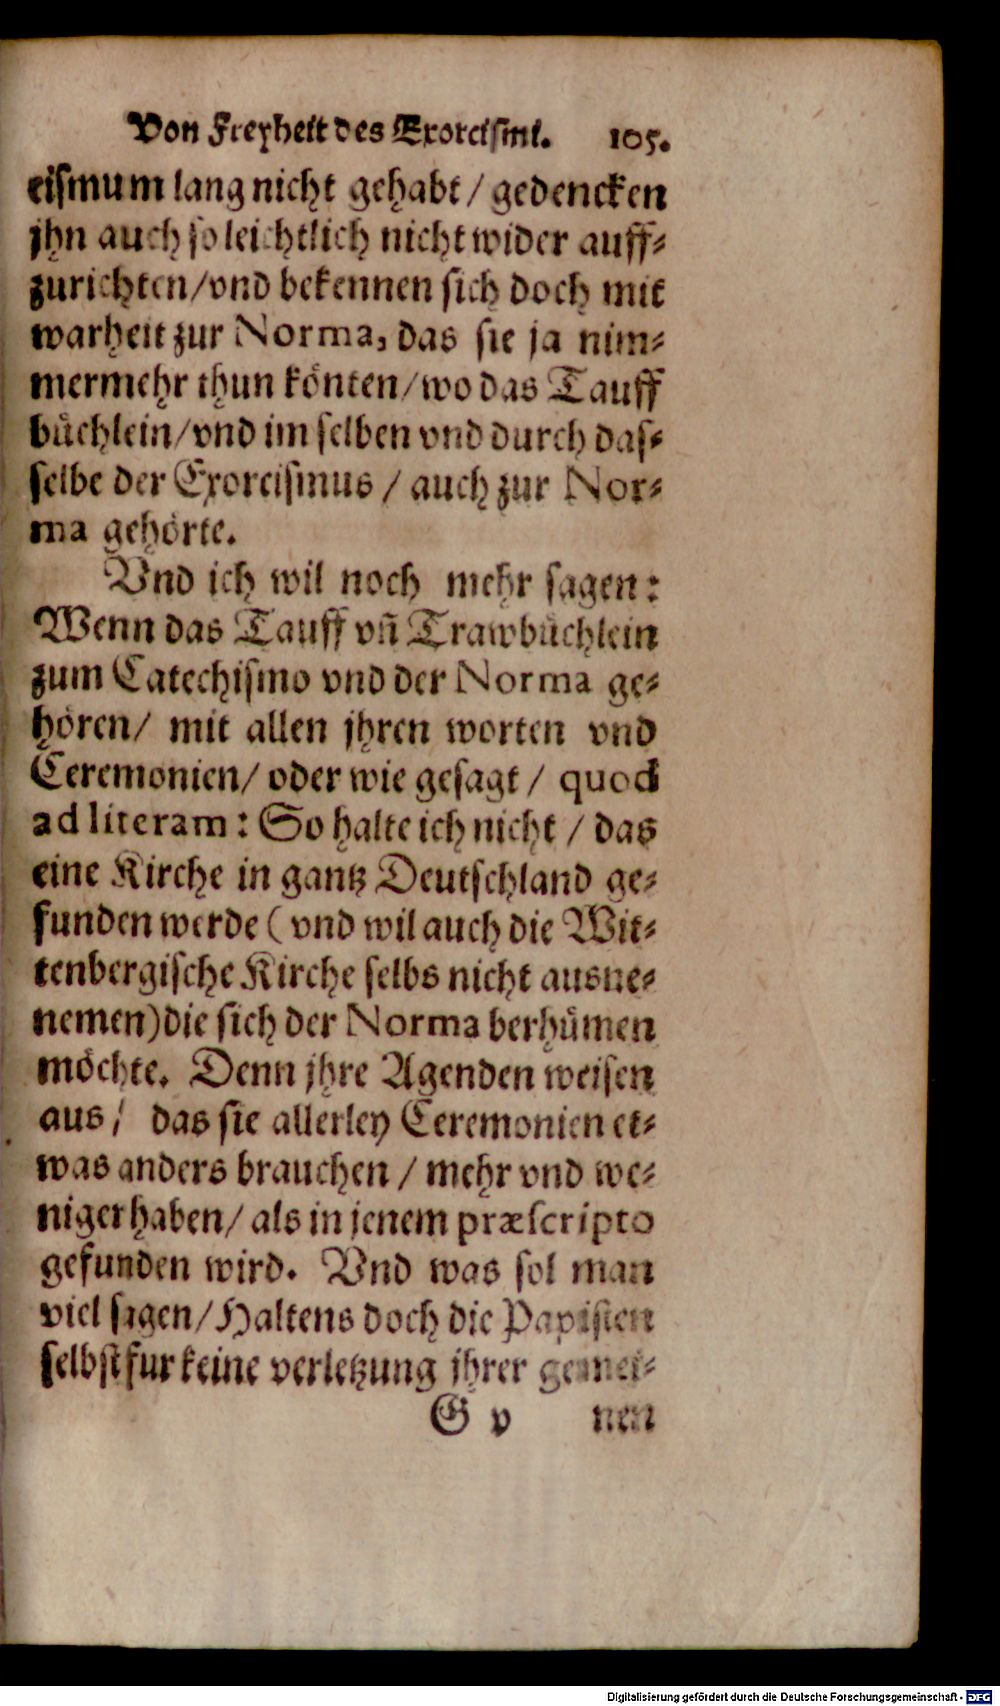 Von Freyheit des Exorcismi. 105.
cismum lang nicht gehabt / gedencken
jhn auch so leichtlich nicht wider auff⸗
zurichten/vnd bekennen sich doch mit
warheit zur Norma, das sie ja nim⸗
mermehr thun koͤnten/wo das Tauff
buͤchlein/vnd im selben vnd durch das⸗
selbe der Exorcismus / auch zur Nor⸗
ma gehoͤrte.
Vnd ich wil noch mehr sagen:
Wenn das Tauff vñ Trawbuͤchlein
zum Catechismo vnd der Norma ge⸗
hoͤren/ mit allen jhren worten vnd
Ceremonien/ oder wie gesagt / quod
ad literam: So halte ich nicht / das
eine Kirche in gantz Deutschland ge⸗
funden werde ( vnd wil auch die Wit⸗
tenbergische Kirche selbs nicht ausne⸗
nemen)die sich der Norma berhuͤmen
moͤchte. Denn jhre Agenden weisen
aus/ das sie allerley Ceremonien et⸗
was anders brauchen / mehr vnd we⸗
niger haben/ als in jenem præscripto
gefunden wird. Vnd was sol man
viel sagen/Haltens doch die Papisten
selbst fur keine verletzung jhrer gemei⸗
G v nen
Digitalisierung gefördert durch die Deutsche Forschungsgemeinschaft - DFG